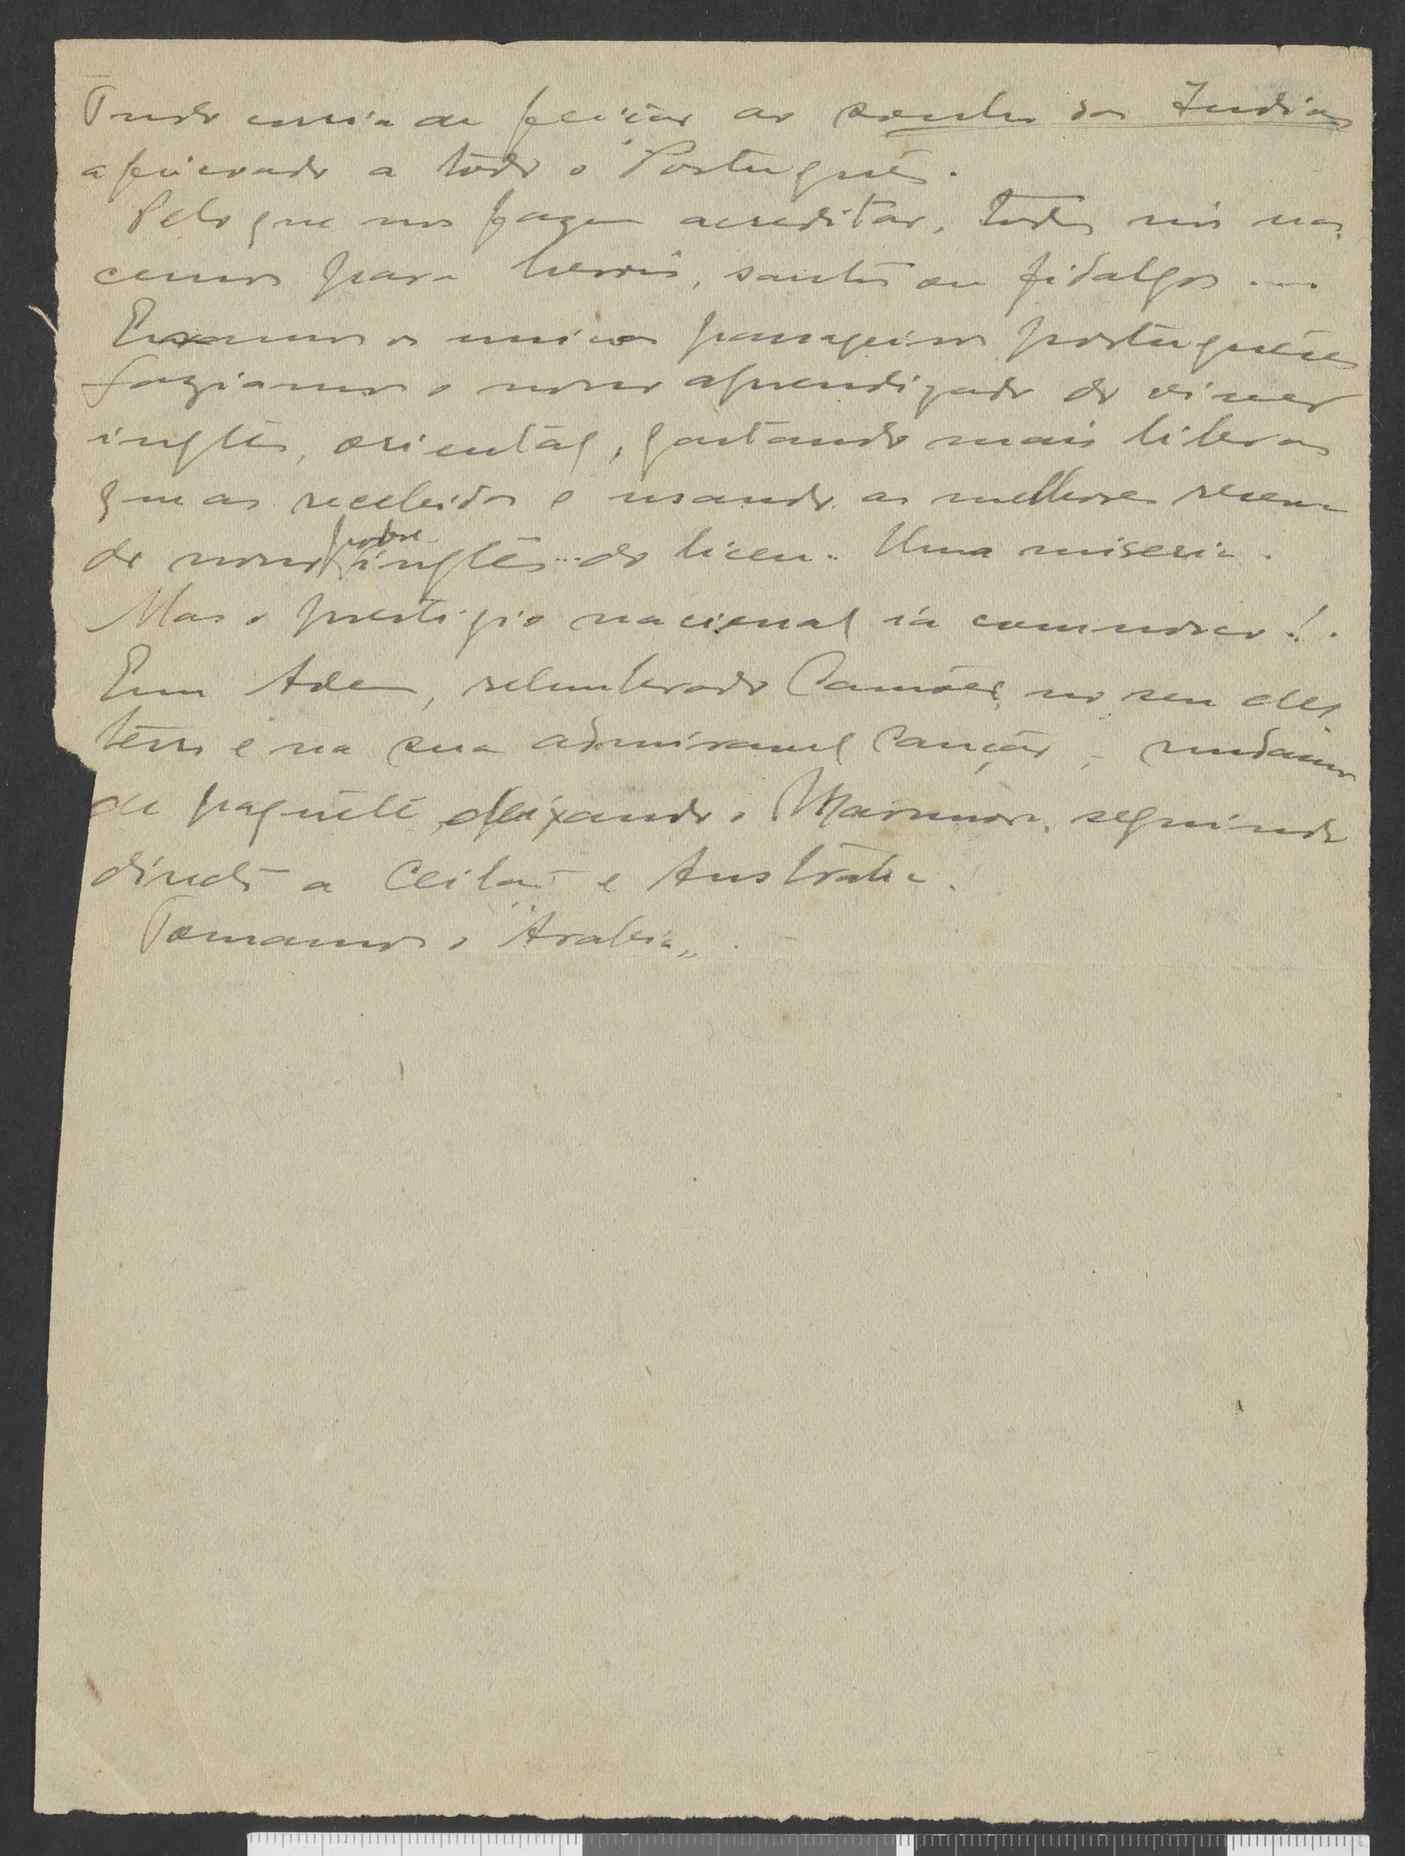 Tudo corria de feição ao sonho das Indias
afeiçoado a todo o Português.
Pelo que nos fazem acreditar, todos nós nas-
cemos para herois, santos ou fidalgos ...
Eramos os unicos passageiros portuguêses
faziamos o nosso aprendizado de viver
inglês, oriental, gastando mais libras
que as recebidas e usando as melhores
do nosso pobre inglês... do liceu.. Uma miseria.
Mas o prestigio nacional ia comnosco!.
Em Aden, relembrado Camões no seu des
terro e na sua admiravel Canção, mudamos
de paquete deixando o Marmora, seguindo
directo a Ceilão e Australia.
Tomamos o "Arabia„.